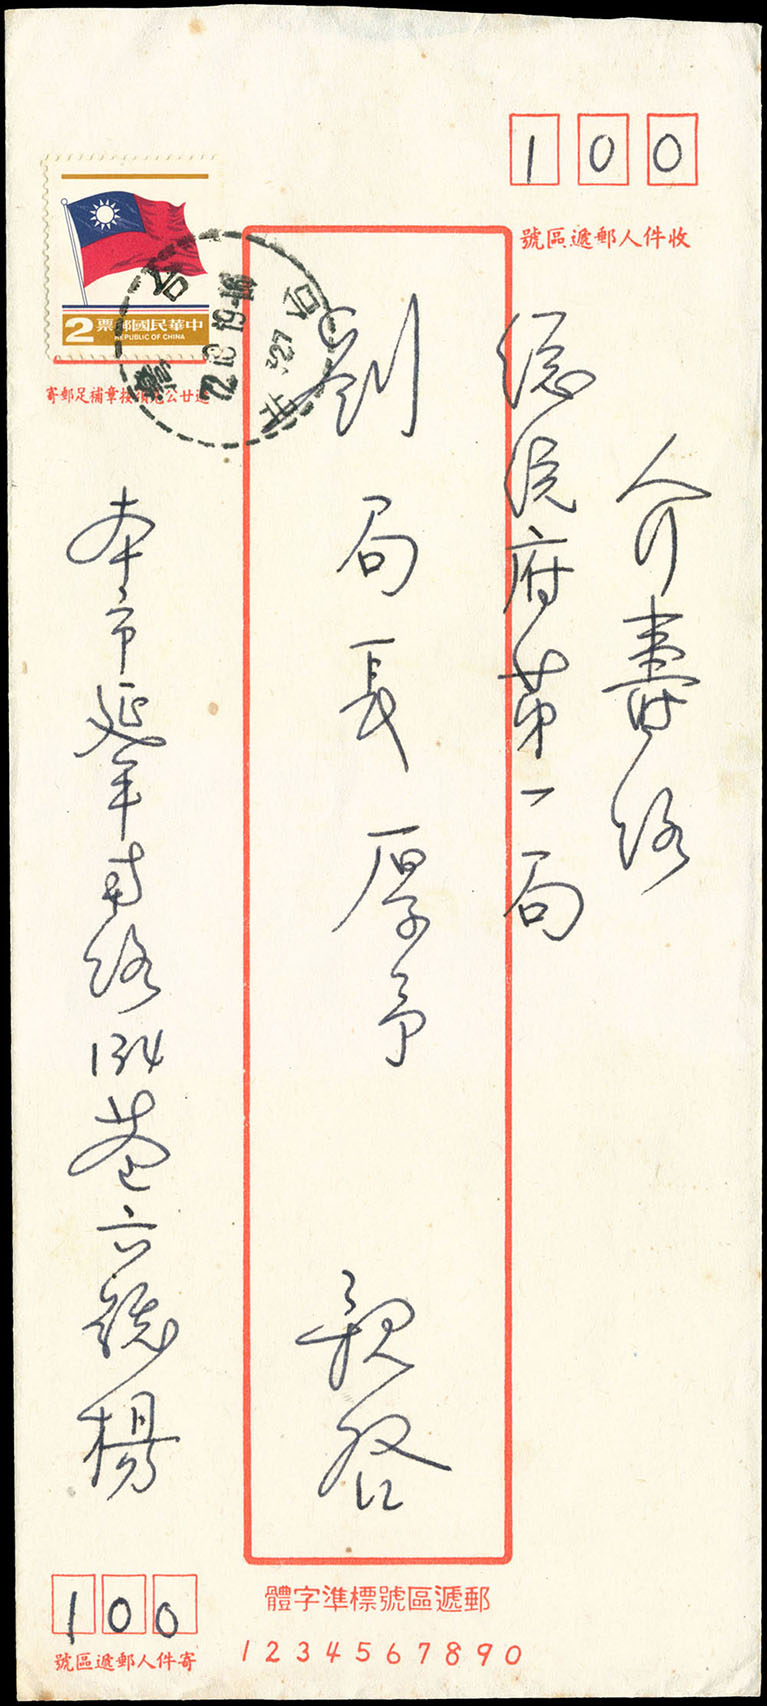 100
收件人郵遞區號
介壽路
總統府第一局
劉局長厚予
親啓
中華民國郵票
REPUBLIC OF CHINA
2
台
72.10.19.16
527
本市延平南路134巷六號楊
100
寄件人郵遞區號
郵遞區號標準字體
1234567890